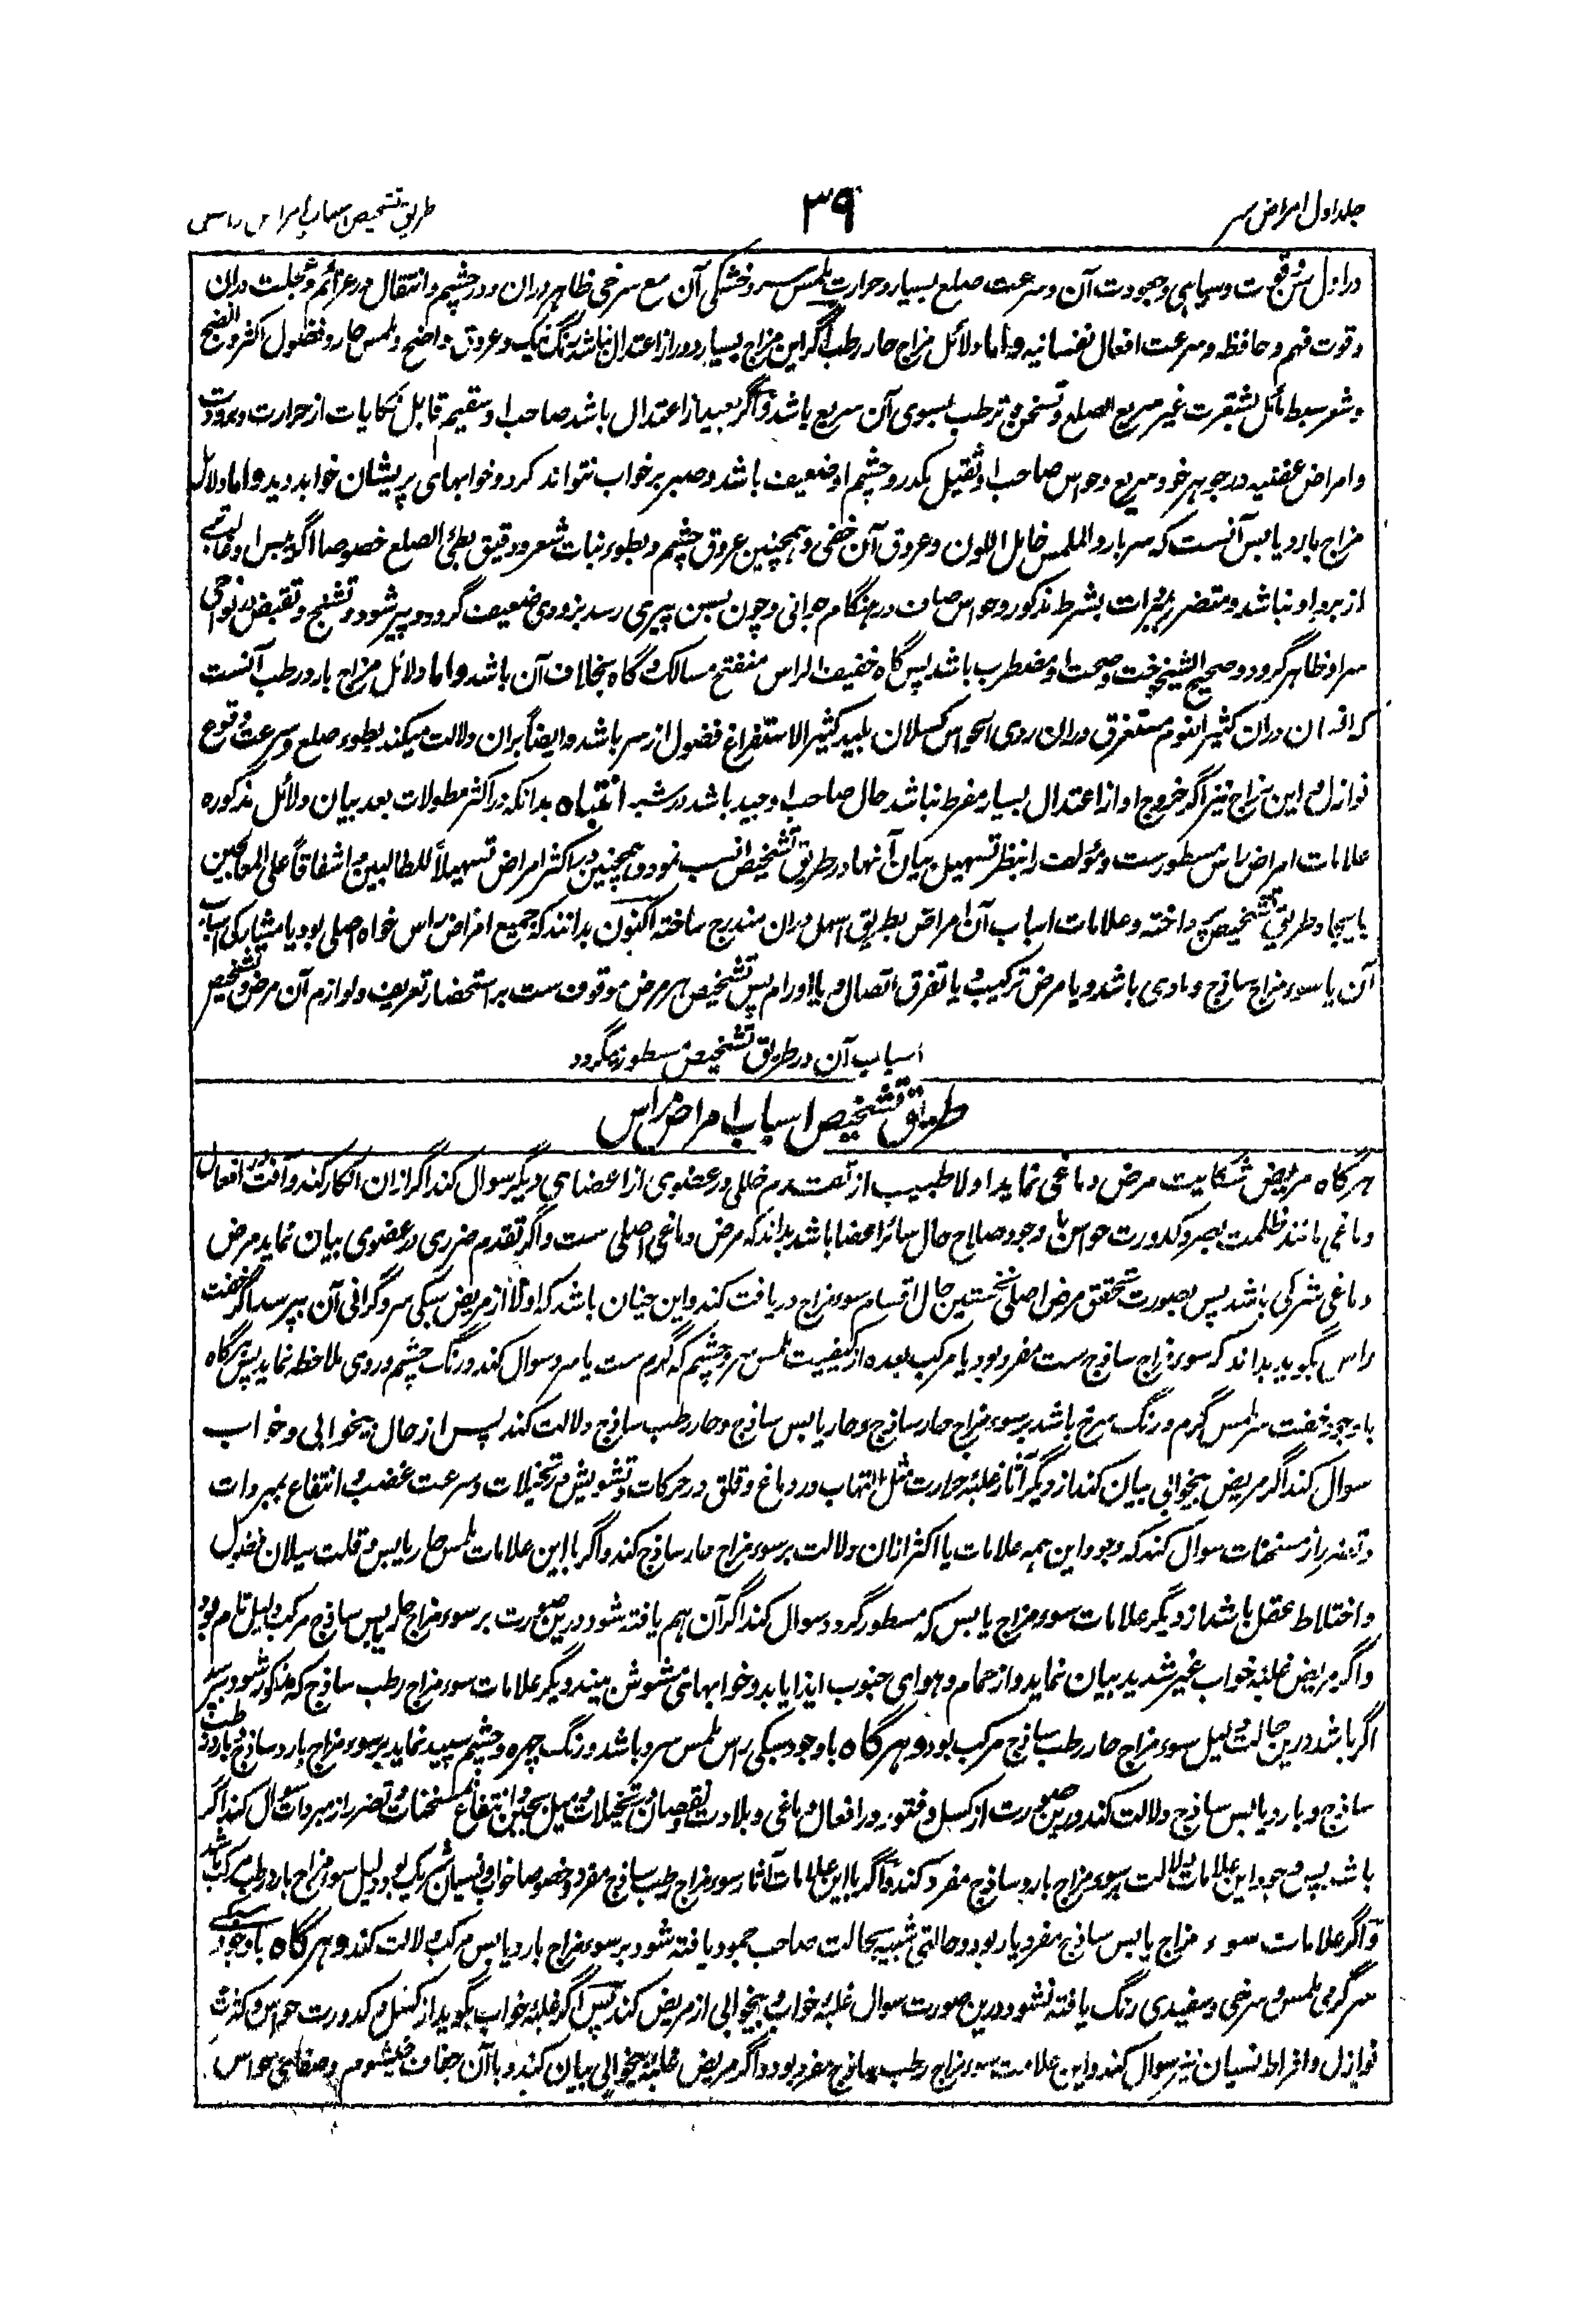 جلد اول امراض سر
۳۹
طریق تشخیص اسباب امراض راس
در اول سن و قوت و سیاهی و جعودت آن و سرعت صلع بسیار و حرارت ملمس سر و خشکی آن مع سرخی ظاهر دران و در چشم و انتقال در عزائم و عجلت دران
و قوت فهم و حافظه و سرعت افعال نفسانیه و اما دلائل مزاج حار رطب اگر این مزاج بسیار دور از اعتدال نباشد رنگ نیک و عروق واضح و ملمس حار و فضول اکثر و انضج
و شعر سبط مائل بشقرت غیر سریع الصلع و تسخن و ترطب بسوی آن سریع باشد و اگر بعید از اعتدال باشد صاحب او سقیم قابل نکایات از حرارت و برودت
و امراض عفنیه در جوهر خود سریع و حواس صاحب او ثقیل مکدر و چشم او ضعیف باشد و صبر بر خواب نتواند کرد و خوابهای پریشان خواهد دید و اما دلائل
مزاج بارد یابس آنست که سر بارد الملمس حائل اللون و عروق آن خفی و همچنین عروق چشم و بطوء نبات شعر و دقیق بطی الصلع خصوصا اگر یبس او غالب
از برد او نباشد و متضرر بمبردات بشرط مذکور و حواس صاف در هنگام جوانی و چون بسن پیری رسد بزودی ضعیف گردد و پیر شود و تشنج و تقبض در نواحی
سر او ظاهر گردد و صحیح الشیخوخت و صحت او مضطرب باشد پس گاه خفیف الراس منفتح مسالک و گاه بخلاف آن باشد و اما دلائل مزاج بارد رطب آنست
که انسان دران کثیر النوم مستغرق دران ردی الحواس کسلان بلید کثیر الاستفراغ فضول از سر باشد و ایضاً بران دلالت میکند بطوء صلع و سرعت وقوع
نوازل و این مزاج نیز اگر خروج او از اعتدال بسیار مفرط نباشد حال صاحب او جید باشد در شبه انتباه بدانکه در اکثر مطولات بعد بیان دلائل مذکوره
علامات امراض راس مسطورست و مولف را بنظر تسهیل بیان آنها در طریق تشخیص انسب نمود و همچنین در اکثر امراض تسهیلاً للطالبین و اشفاقاً علی المعالجین
بایجاد طریق تشخیص پرداخته و علامات اسباب آن امراض بطریق اسهل دران مندرج ساخته اکنون بدانند که جمیع امراض راس خواه اصلی بود یا مشارکی اسباب
آن یا سوء مزاج ساذج و مادی باشد و یا مرض ترکیب و یا تفرق اتصال و یا اورام پس تشخیص هر مرض موقوف ست بر استحضار تعریف و لوازم آن مرض و تشخیص
اسباب آن در طریق تشخیص مسطور میگردد
طریق تشخیص اسباب امراض راس
هرگاه مریض شکایت مرض دماغی نماید اولا طبیب از تقدم خللی در عضوی از اعضای دیگر سوال کند اگر ازان انکار کند و آفت در افعال
دماغی مانند ظلمت بصر و کدورت حواس با وجود صلاح حال سائر اعضا باشد بداند که مرض دماغی اصلی ست و اگر تقدم ضرری در عضوی بیان نماید مرض
دماغی شرکی باشد پس بصورت تحقق مرض اصلی نخستین حال اقسام سوء مزاج دریافت کند و این چنان باشد که اولاً از مریض سبکی سر و گرانی آن بپرسد اگر خفت
راس بگوید بداند که سوء مزاج ساذج ست مفرد بود یا مرکب بعده از کیفیت ملمس سر و چشم که گرم ست یا سرد سوال کند و رنگ چشم و روی ملاحظه نماید پس هرگاه
باوجود خفت سر ملمس گرم و رنگ سرخ باشد بر سوء مزاج حار ساذج و حار یابس ساذج و حار رطب ساذج دلالت کند پس از حال بیخوابی و خواب
سوال کند اگر مریض بیخوابی بیان کند از دیگر آثار غلبه حرارت مثل التهاب در دماغ و قلق در حرکات و تشویش در تخیلات و سرعت غضب و انتفاع بمبردات
و تضرر از مسخنات سوال کند که وجود این همه علامات یا اکثر ازان دلالت بر سوء مزاج حار ساذج کند و اگر با این علامات ملمس حار یابس و قلت سیلان فضول
و اختلاط عقل باشد از دیگر علامات سوء مزاج یابس که مسطور گردد سوال کند اگر آن هم یافته شود درین صورت بر سوء مزاج حار یابس ساذج مرکب دلیل تام بود
و اگر مریض غلبه خواب غیر شدید بیان نماید و از حمام و هوای جنوب ایذا یابد و خوابهای مشوش بیند دیگر علامات سوء مزاج رطب ساذج که مذکور شود بپرسد
اگر باشد درین حالت دلیل سوء مزاج حار رطب ساذج مرکب بود و هرگاه باوجود سبکی راس ملمس سرد باشد و رنگ چهره و چشم سپید نماید بر سوء مزاج بارد ساذج و بارد رطب
ساذج و بارد یابس ساذج دلالت کند درین صورت از کسل و فتور در افعال دماغی و بلادت و نقصان تخیلات و میل بجبن و انتفاع بمسخنات و تضرر از مبردات سوال کند اگر
باشد پس وجود این علامات دلالت بر سوء مزاج بارد ساذج مفرد کند و اگر با این علامات آثار سوء مزاج رطب ساذج مفرد خصوصا خواب و نسیان شریک بود دلیل سوء مزاج بارد رطب مرکب باشد
و اگر علامات سوء مزاج یابس ساذج مفرد یار بود و حالتی شبیه بحالت صاحب جمود یافته شود بر سوء مزاج بارد یابس مرکب دلالت کند و هرگاه باوجود سبکی
سر گرمی ملمس و سرخی و سفیدی رنگ یافته نشود درین صورت سوال غلبه خواب و بیخوابی از مریض کند پس اگر غلبه خواب بگوید از کسل و کدورت حواس و کثرت
نوازل و افراط نسیان نیز سوال کند و این علامت سوء مزاج رطب ساذج مفرد بود و اگر مریض غلبه بیخوابی بیان کند و با آن جفاف خیشوم و صفای حواس